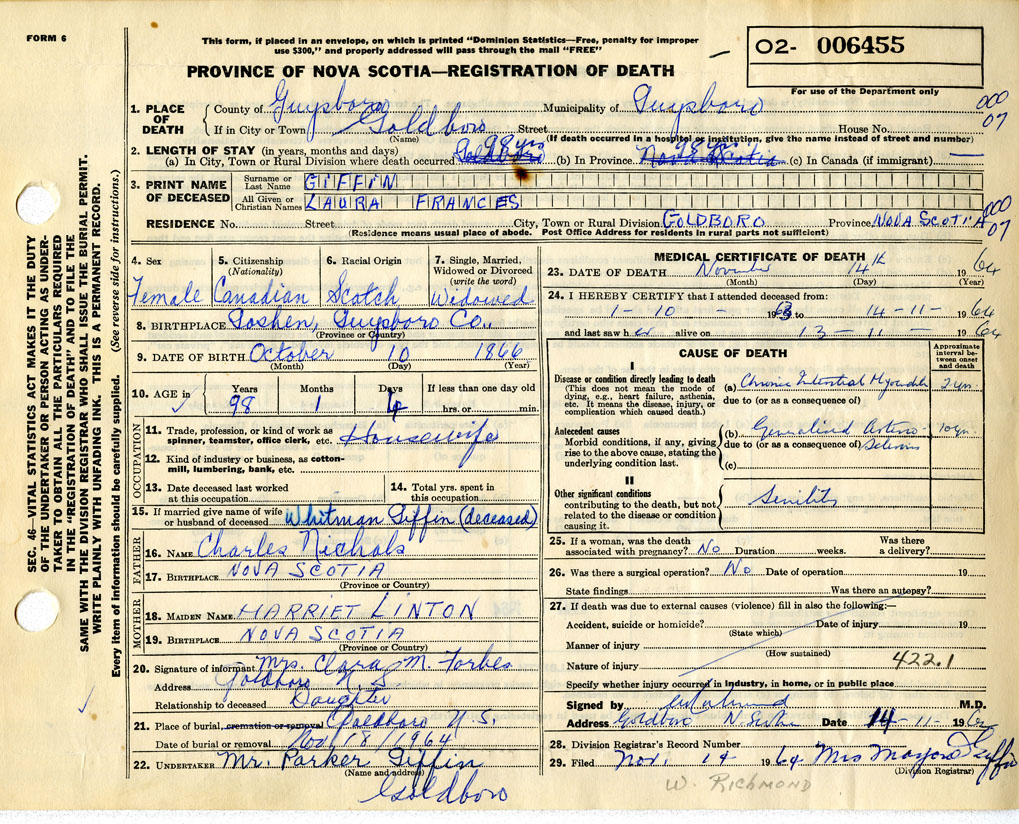 FORM 6
This form, if placed in an envelope, on which is printed "Dominion Statistics—Free, penalty for improper
use $300," and properly addressed will pass through the mail "FREE"
02- 006455
For use of the Department only
PROVINCE OF NOVA SCOTIA—REGISTRATION OF DEATH
000
07
1. PLACE OF DEATH County of Guysboro Municipality of Guysboro
If in City or Town Goldboro Street House No.
(Name) (If death occurred in a hospital or institution, give the name instead of street and number)
2. LENGTH OF STAY (in years, months and days)
(a) In City, Town or Rural Division where death occurred Goldboro 98 yrs (b) In Province Nova Scotia 98 yrs (c) In Canada (if immigrant) —
3. PRINT NAME OF DECEASED
Surname or Last Name GIFFIN
All Given or Christian Names LAURA FRANCES
RESIDENCE No. Street City, Town or Rural Division GOLDBORO Province NOVA SCOTIA
000
07
(Residence means usual place of abode. Post Office Address for residents in rural parts not sufficient)
4. Sex Female
5. Citizenship (Nationality) Canadian
6. Racial Origin Scotch
7. Single, Married, Widowed or Divorced (write the word) Widowed
8. BIRTHPLACE Goshen, Guysboro Co.,
(Province or Country)
9. DATE OF BIRTH October 10 1866
(Month) (Day) (Year)
10. AGE in Years 98 Months 1 Days 4 If less than one day old hrs. or min.
OCCUPATION
11. Trade, profession, or kind of work as spinner, teamster, office clerk, etc. Housewife
12. Kind of industry or business, as cotton-mill, lumbering, bank, etc.
13. Date deceased last worked at this occupation
14. Total yrs. spent in this occupation
15. If married give name of wife or husband of deceased Whitman Giffin (deceased)
FATHER
16. NAME Charles Nichols
17. BIRTHPLACE NOVA SCOTIA
(Province or Country)
MOTHER
18. MAIDEN NAME HARRIET LINTON
19. BIRTHPLACE NOVA SCOTIA
(Province or Country)
20. Signature of informant Mrs. Clara M. Forbes
Address Goldboro N.S.
Relationship to deceased Daughter
21. Place of burial, cremation or removal Goldboro N.S.
Date of burial or removal Nov 18/1964
22. UNDERTAKER Mr. Parker Giffin
(Name and address)
Goldboro
MEDICAL CERTIFICATE OF DEATH
23. DATE OF DEATH November 14th 1964
(Month) (Day) (Year)
24. I HEREBY CERTIFY that I attended deceased from:
1-10-1963 to 14-11-1964
and last saw her alive on 13-11-1964
CAUSE OF DEATH
Approximate interval between onset and death
I
Disease or condition directly leading to death (a) Chronic Interstitial 2 yrs.
(This does not mean the mode of dying, e.g., heart failure, asthenia, etc. It means the disease, injury, or complication which caused death.)
due to (or as a consequence of)
Antecedent causes (b) Generalized Arterio- 10 yrs.
Morbid conditions, if any, giving rise to the above cause, stating the underlying condition last.
due to (or as a consequence of) Sclerosis
(c)
II
Other significant conditions contributing to the death, but not related to the disease or condition causing it. Senility
25. If a woman, was the death associated with pregnancy? No Duration weeks. Was there a delivery?
26. Was there a surgical operation? No Date of operation 19
State findings Was there an autopsy?
27. If death was due to external causes (violence) fill in also the following:—
Accident, suicide or homicide? Date of injury 19
(State which)
Manner of injury
(How sustained)
Nature of injury 422.1
Specify whether injury occurred in industry, in home, or in public place
Signed by M.D.
Address Goldboro Date 14-11-1964
28. Division Registrar's Record Number
29. Filed Nov. 14 1964 Mrs Giffin
(Division Registrar)
W. RICHMOND
SEC. 46 VITAL STATISTICS ACT MAKES IT THE DUTY
OF THE UNDERTAKER OR PERSON ACTING AS UNDER-
TAKER TO OBTAIN ALL THE PARTICULARS REQUIRED
IN THE "REGISTRATION OF DEATH" AND TO FILE THE
SAME WITH THE DIVISION REGISTRAR WHO SHALL ISSUE THE BURIAL PERMIT.
WRITE PLAINLY WITH UNFADING INK. THIS IS A PERMANENT RECORD.
Every item of information should be carefully supplied. (See reverse side for instructions.)